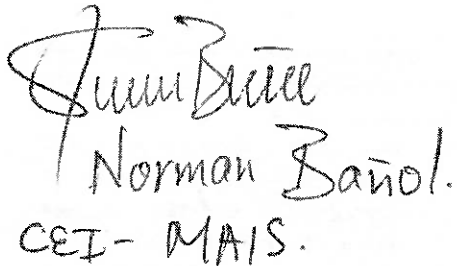 Norman Bañol.
CEI - MAIS.